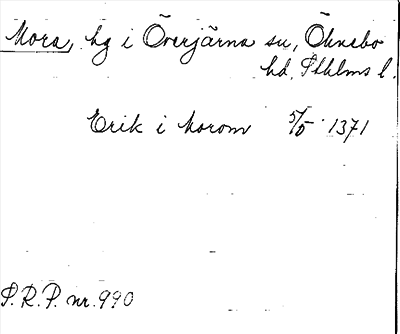 Mora, hg i Överjärna sn, Öknebo
hd, Sthlms l.
Erik i morom 5/5 1371
S.R.P. nr. 990